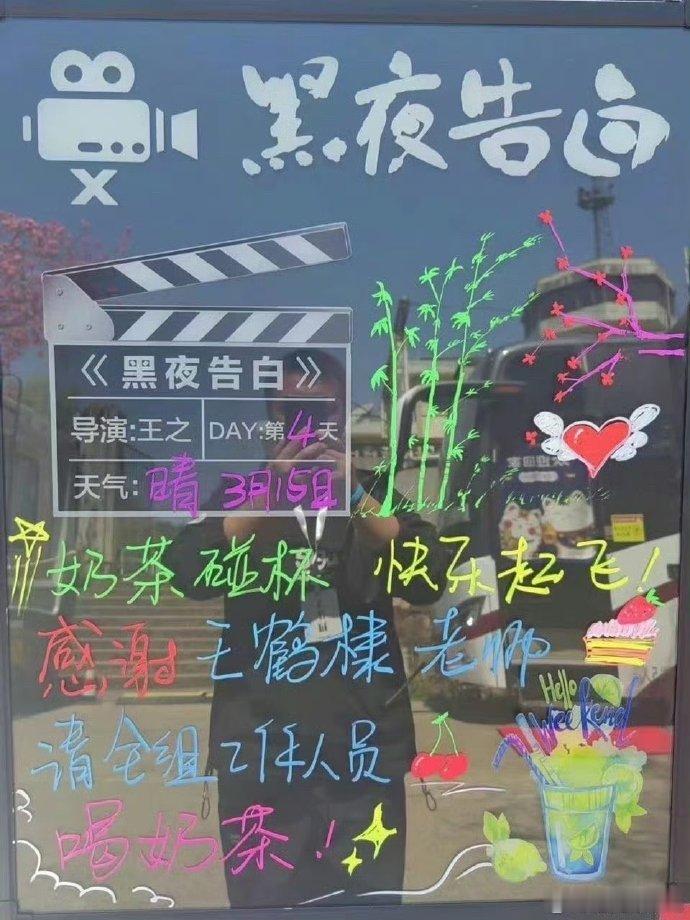 黑夜告白
《黑夜告白》
导演:王之 DAY:第4天
天气:晴 3月15日
奶茶碰杯 快乐起飞!
感谢王鹤棣老师
Hello
Weekend
请全组工作人员
喝奶茶!